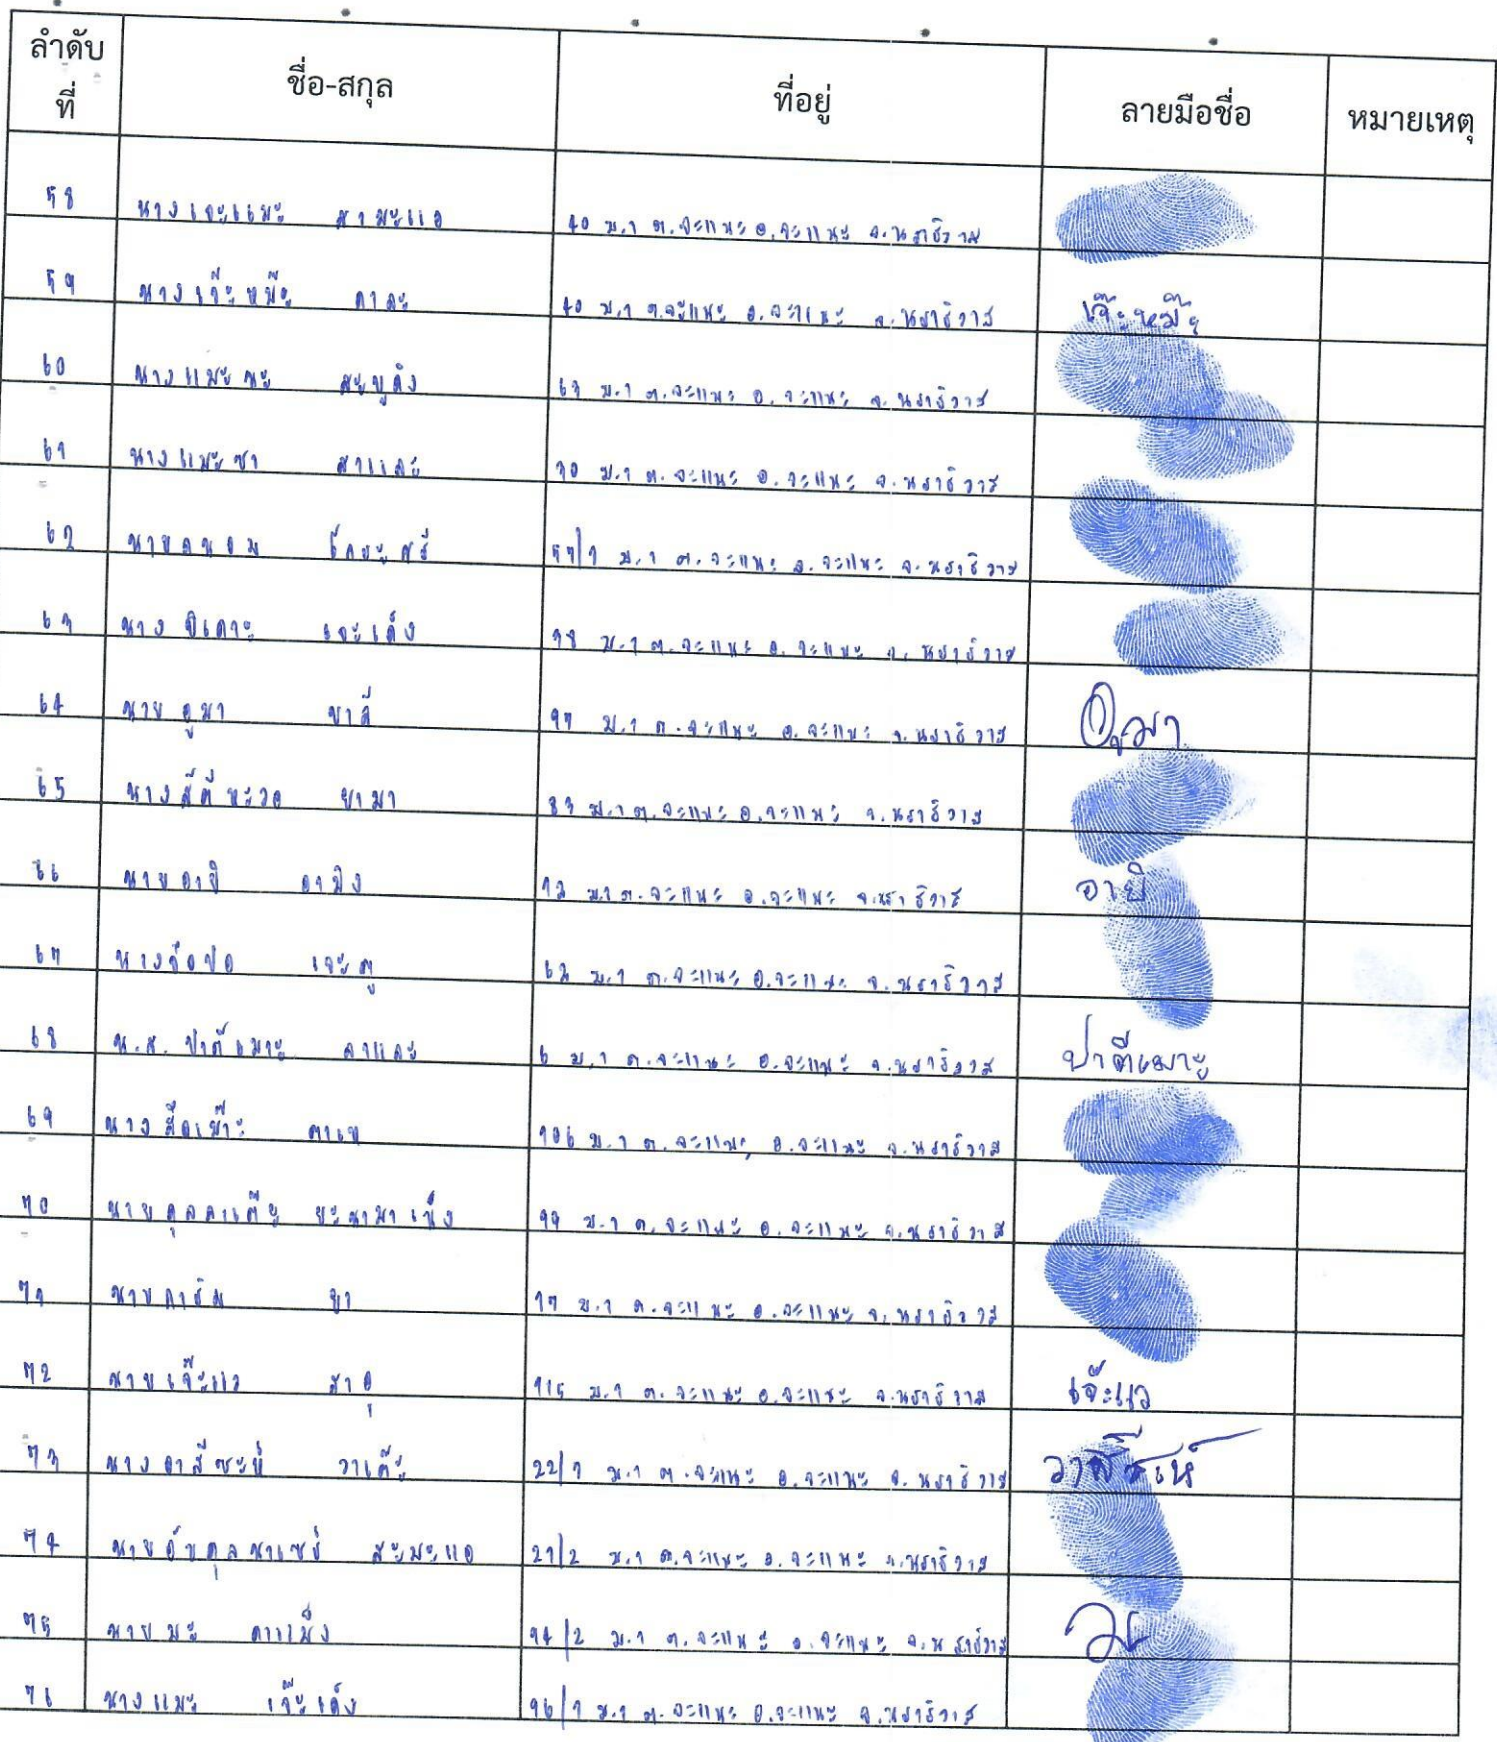 ลำดับที่ ชื่อ-สกุล ที่อยู่ ลายมือชื่อ หมายเหตุ
58 นางเจะแมะ สามะแอ 40 ม.1 ต.จะแนะ อ.จะแนะ จ.นราธิวาส
59 นางเจ๊ะหม๊ะ ดาละ 40 ม.1 ต.จะแนะ อ.จะแนะ จ.นราธิวาส เจ๊ะหม๊ะ
60 นางแมะนะ สะบูดิง 63 ม.1 ต.จะแนะ อ.จะแนะ จ.นราธิวาส
61 นางแมะซา สาและ 30 ม.1 ต.จะแนะ อ.จะแนะ จ.นราธิวาส
62 นายถนอม 57/1 ม.1 ต.จะแนะ อ.จะแนะ จ.นราธิวาส
63 นาง เจะเด็ง 38 ม.1 ต.จะแนะ อ.จะแนะ จ.นราธิวาส
64 นายอูมา ยาลี 97 ม.1 ต.จะแนะ อ.จะแนะ จ.นราธิวาส อูมา
65 นางสีตีหะวอ ยามา 83 ม.1 ต.จะแนะ อ.จะแนะ จ.นราธิวาส
66 นายอายิ อามิง ม.1 ต.จะแนะ อ.จะแนะ จ.นราธิวาส อายิ
67 เจะตู ม.1 ต.จะแนะ อ.จะแนะ จ.นราธิวาส
68 น.ส.ปาตีเมาะ ลาและ 6 ม.1 ต.จะแนะ อ.จะแนะ จ.นราธิวาส ปาตีเมาะ
69 นาง ตาเย 106 ม.1 ต.จะแนะ อ.จะแนะ จ.นราธิวาส
70 นายดุลคาเต๊ะ 99 ม.1 ต.จะแนะ อ.จะแนะ จ.นราธิวาส
71 นายการิม ยา 17 ม.1 ต.จะแนะ อ.จะแนะ จ.นราธิวาส
72 นายเจ๊ะแว สาอุ 115 ม.1 ต.จะแนะ อ.จะแนะ จ.นราธิวาส เจ๊ะแว
73 นางอาสีซะห์ วาเต๊ะ 22/1 ม.1 ต.จะแนะ อ.จะแนะ จ.นราธิวาส
74 นายอับดุลนาเซร์ สะมะแอ 21/2 ม.1 ต.จะแนะ อ.จะแนะ จ.นราธิวาส
75 นายมะ กาเม็ง 94/2 ม.1 ต.จะแนะ อ.จะแนะ จ.นราธิวาส
76 นางแมะ เจ๊ะเด็ง 96/1 ม.1 ต.จะแนะ อ.จะแนะ จ.นราธิวาส